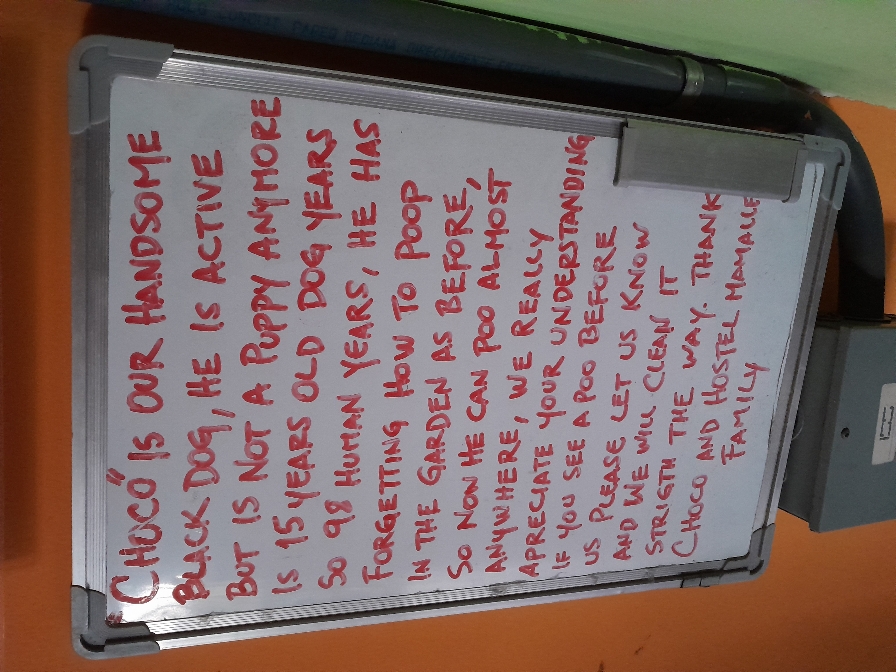 "CHOCO" IS OUR HANDSOME
BLACK DOG, HE IS ACTIVE
BUT IS NOT A PUPPY ANYMORE
IS 15 YEARS OLD DOG YEARS
SO 98 HUMAN YEARS, HE HAS
FORGETTING HOW TO POOP
IN THE GARDEN AS BEFORE,
SO NOW HE CAN POO ALMOST
ANYWHERE, WE REALLY
APRECIATE YOUR UNDERSTANDING
IF YOU SEE A POO BEFORE
US PLEASE LET US KNOW
AND WE WILL CLEAN IT
STRIGTH THE WAY. THANK
CHOCO AND HOSTEL MAMALLE
FAMILY